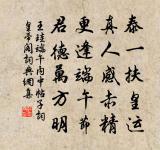 泰一扶皇运
真人感赤精
更逢端午节
君德万方明
王珪端午内中帖子词
皇帝阁词典网集